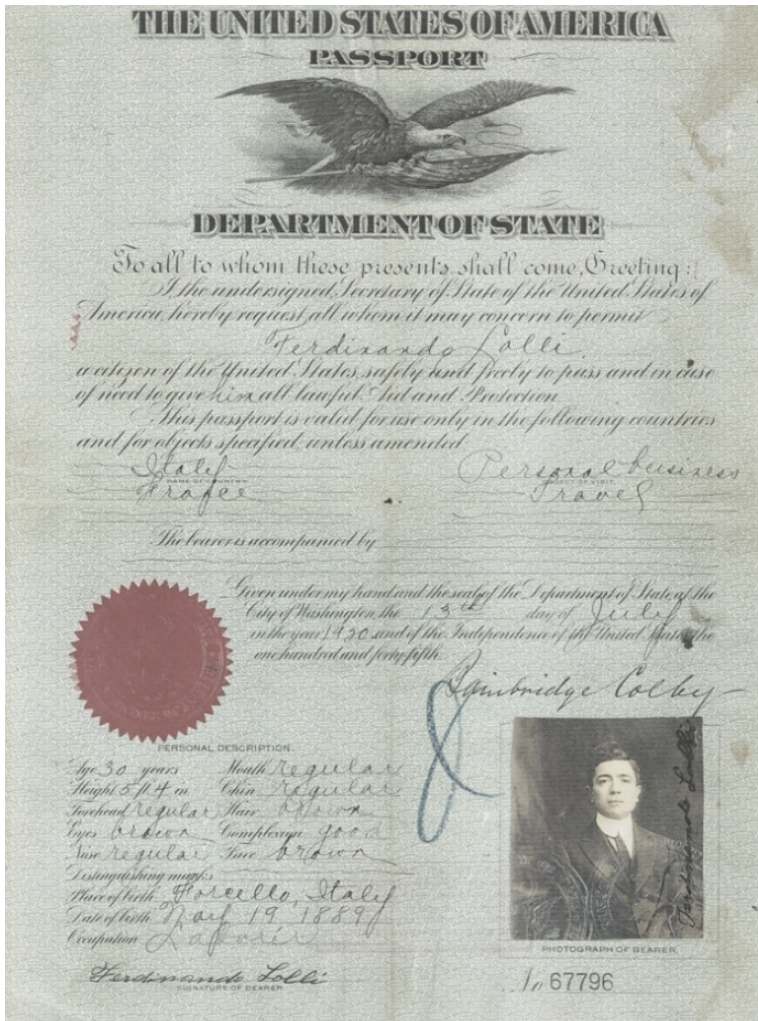 THE UNITED STATES OF AMERICA
PASSPORT
DEPARTMENT OF STATE
To all to whom these presents shall come, Greeting:
I, the undersigned, Secretary of State of the United States of
America, hereby request all whom it may concern to permit
Ferdinando Lolli
a citizen of the United States, safely and freely to pass and in case
of need to give him all lawful Aid and Protection
This passport is valid for use only in the following countries
and for objects specified, unless amended
Italy Personal business
NAME OF COUNTRY OBJECT OF VISIT
France Travel
The bearer is accompanied by
Given under my hand and the seal of the Department of State at the
City of Washington, the 13th day of July
in the year 1920 and of the Independence of the United States the
one hundred and forty-fifth.
Bainbridge Colby
PERSONAL DESCRIPTION.
Age 30 years Mouth regular
Height 5 ft 4 in. Chin regular
Forehead regular Hair brown
Eyes brown Complexion good
Nose regular Face brown
Distinguishing marks
Place of birth Italy
Date of birth 19, 1889
Occupation
Ferdinando Lolli
SIGNATURE OF BEARER
Ferdinando Lolli
PHOTOGRAPH OF BEARER
No 67796